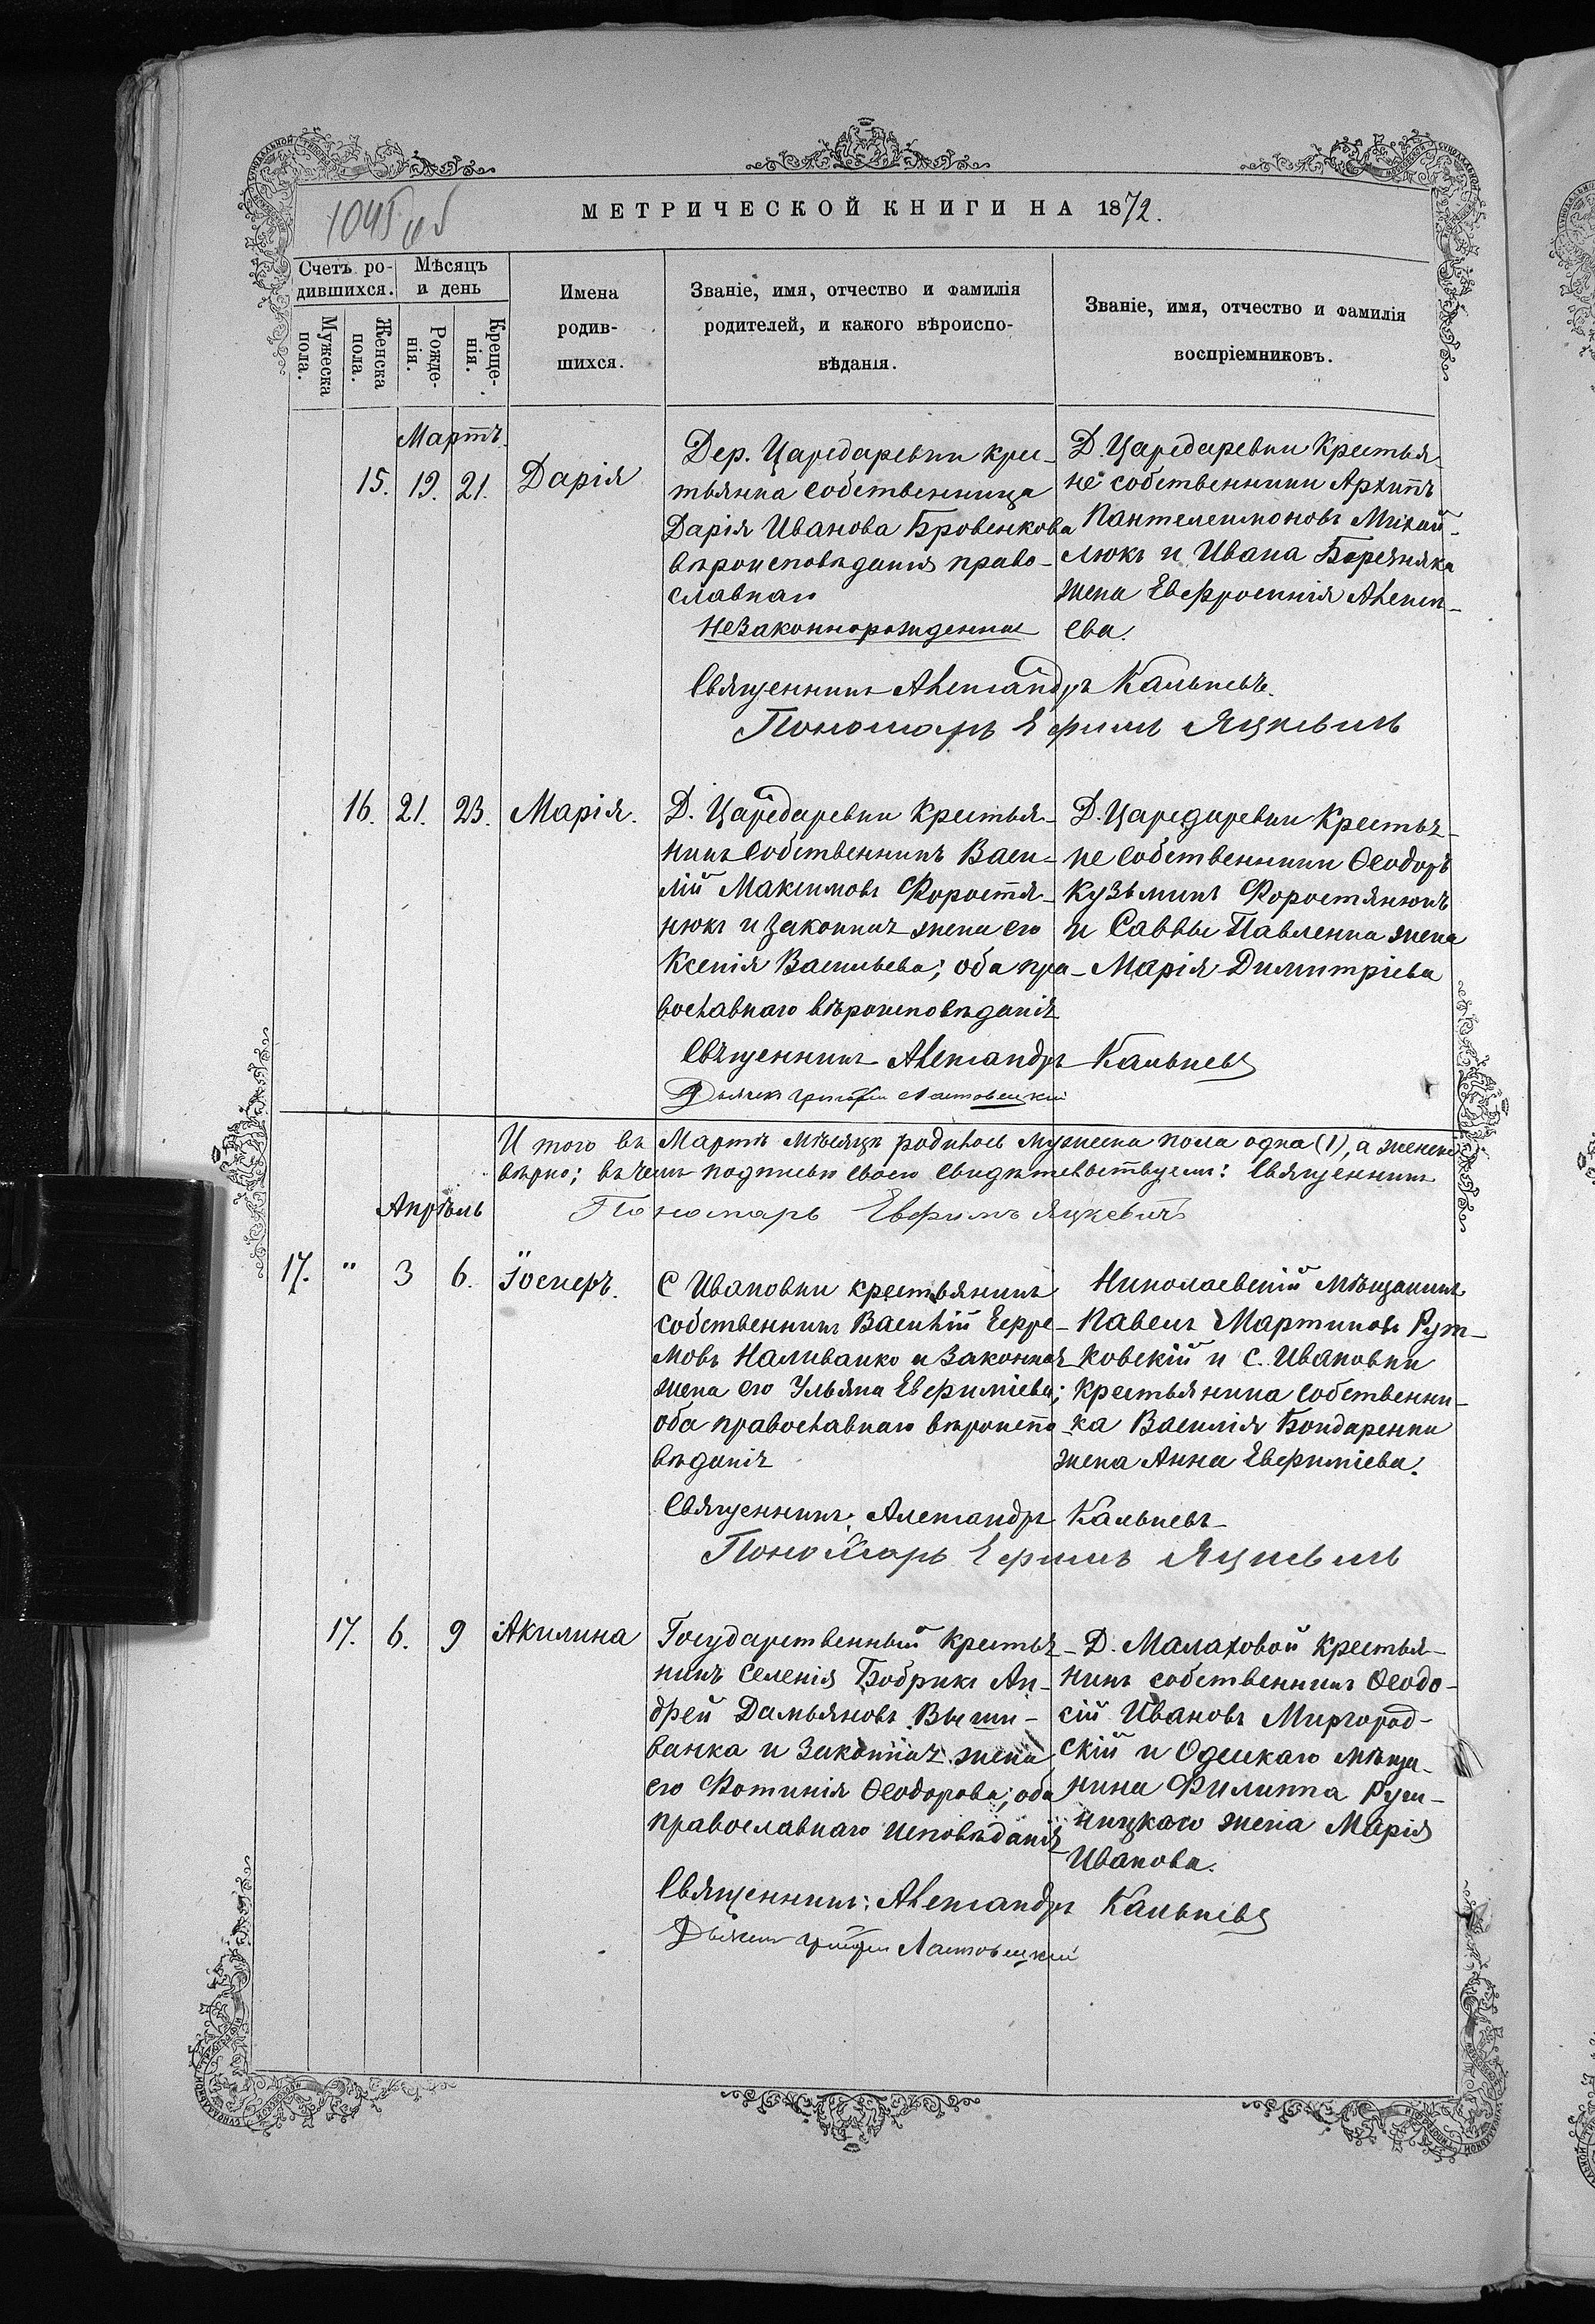 1045 об
МЕТРИЧЕСКОЙ КНИГИ НА 1872.
Счетъ ро-
дившихся.
Мѣсяцъ
и день
Мужеска
пола.
Женска
пола.
Рожде-
нія.
Креще-
нія.
Имена
родив-
шихся.
Званіе, имя, отчество и фамилія
родителей, и какого вѣроиспо-
вѣданія.
Званіе, имя, отчество и фамилія
воспріемниковъ.
Мартъ.
15. 19. 21. Дарія
Дер. Царедаревки кре-
тьянка собственница
Дарія Иванова Бровенкова
вѣроисповѣданія право-
славнаго
незаконнорожденная
Д. Царедаревки Крестья-
не собственники Архипъ
Пантелеимоновъ Михай-
люкъ и Ивана Березняка
жена Евфросинія Алексѣ-
ева.
Священникъ Александръ Кальневъ.
Пономарь Ефимъ Яцкевичъ
16. 21. 23. Марія.
Д. Царедаревки Крестья-
нинъ Собственникъ Васи-
лій Максимовъ Форостя-
нюкъ и Законная жена его
Ксенія Васильева; оба пра-
вославнаго вѣроисповѣданія
Д. Царедаревки Крестья-
не Собственники Ѳеодоръ
Кузьминъ Форостянюкъ
и Саввы Павленка жена
Марія Димитріева
Священникъ Александръ Кальневъ
Дьячекъ Григорій Лястовецкій
И того въ Мартѣ мѣсяцѣ родилось мужеска пола одна (1), а женска
вѣрно; въ чемъ подписью своею свидѣтельствуемъ: Священникъ
Пономарь Евфимъ Яцкевичъ
Апрѣль
17. " 3 6. Іосифъ.
С Ивановки крестьянинъ
собственникъ Василій Ефре-
мовъ Наливайко и Законная
жена его Ульяна Евфиміева;
оба православнаго вѣроиспо-
вѣданія
Николаевскій мѣщанинъ
Павелъ Мартиновъ Рут-
ковскій и с. Ивановки
Крестьянина собственни-
ка Василія Бондаренка
жена Анна Евфиміева.
Священникъ Александръ Кальневъ
Пономарь Ефимъ Яцкевичъ
17. 6. 9 Акилина
Государственный Крестья-
нинъ селенія Бобрикъ Ан-
дрей Дамьяновъ Выши-
ванка и Законная жена
его Фотинія Ѳеодорова; оба
православнаго исповѣданія
Д. Малаховой Крестья-
нинъ собственникъ Ѳеодо-
сій Ивановъ Миргород-
скій и Одескаго мѣща-
нина Филиппа Руш-
ницкаго жена Марія
Иванова.
Священникъ: Александръ Кальневъ
Дьячекъ Григорій Лястовецкій